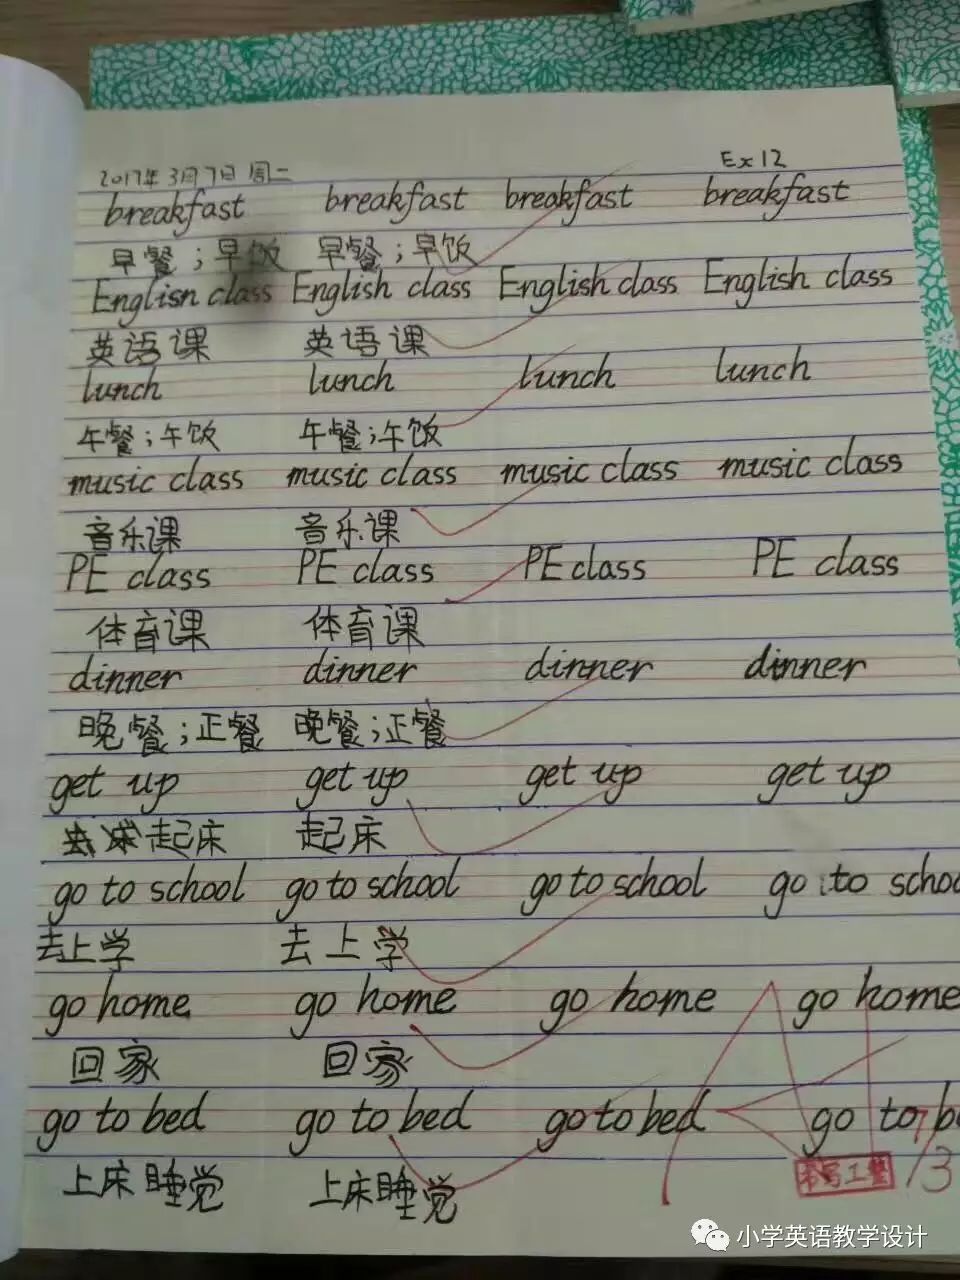 2017年3月7日 周二 Ex12
breakfast breakfast breakfast breakfast
早餐；早饭 早餐；早饭
Englisn class English class English class English class
英语课 英语课
lunch lunch lunch lunch
午餐；午饭 午餐；午饭
music class music class music class music class
音乐课 音乐课
PE class PE class PE class PE class
体育课 体育课
dinner dinner dinner dinner
晚餐；正餐 晚餐；正餐
get up get up get up get up
起床 起床
go to school go to school go to school go to schoo
去上学 去上学
go home go home go home go home
回家 回家
go to bed go to bed go to bed go to b
上床睡觉 上床睡觉
书写工整
小学英语教学设计